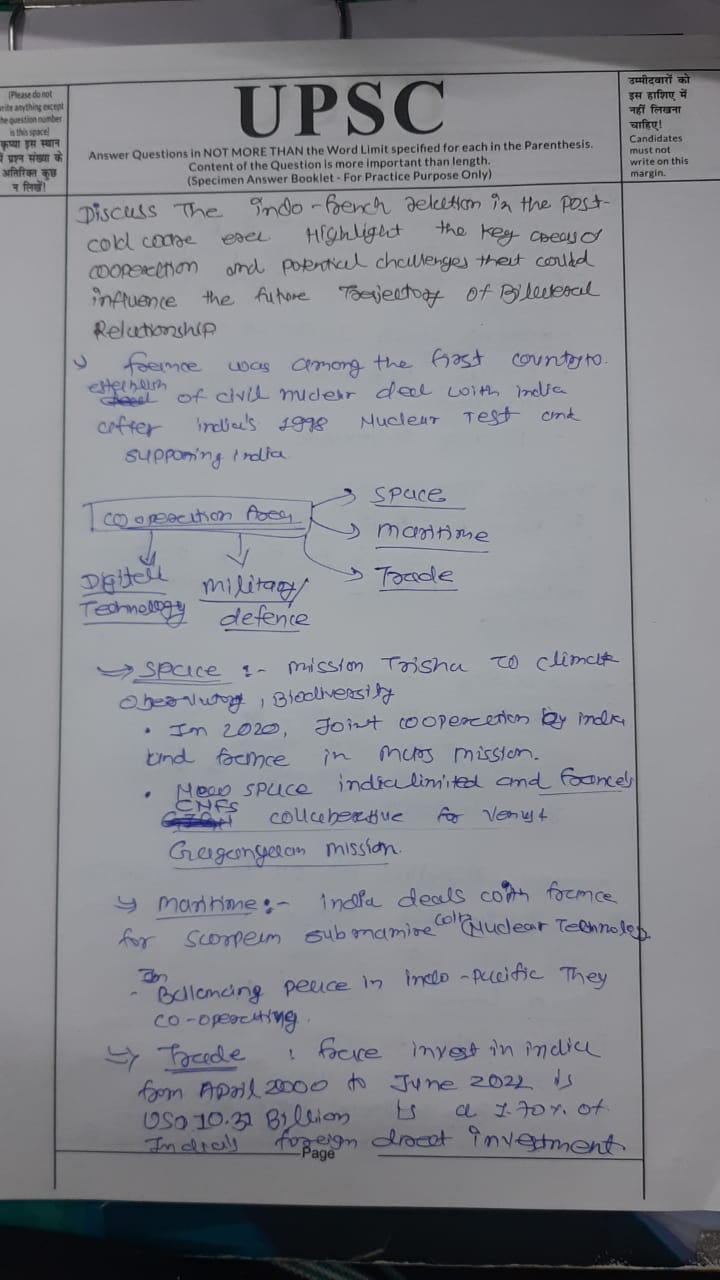 (Please do not
write anything except
the question number
is this space)
कृप्या इस स्थान
में प्रश्न संख्या के
अतिरिक्त कुछ
न लिखें!
UPSC
Answer Questions in NOT MORE THAN the Word Limit specified for each in the Parenthesis.
Content of the Question is more important than length.
(Specimen Answer Booklet - For Practice Purpose Only)
उम्मीदवारों को
इस हाशिए में
नहीं लिखना
चाहिए!
Candidates
must not
write on this
margin.
Discuss The indo-french relation in the post-
cold war era Highlight the key areas of
cooperation and potential challenges that could
influence the future Trajectory of Bilateral
Relationship
france was among the first country to
establish of civil nuclear deal with india
after india's 1998 Nuclear Test and
supporing india
Cooperation Area
Space
maritime
Trade
Digital
Technology
military/
defence
Space :- mission Trisha to climate
Observatory, Biodiversity
• In 2020, Joint cooperation by india
and france in mars mission.
• New space india limited and france's
CNFS collaberative for Venus +
Gaganyaan mission.
maritime :- india deals with france
for scorpean submarine with (Nuclear Technolog
- In Ballancing peace in indo-pacific They
co-operating.
Trade : france invest in india
from April 2000 to June 2022 is
USD 10.31 Billion is a 1.70%. of
India's foreign direct investment
Page